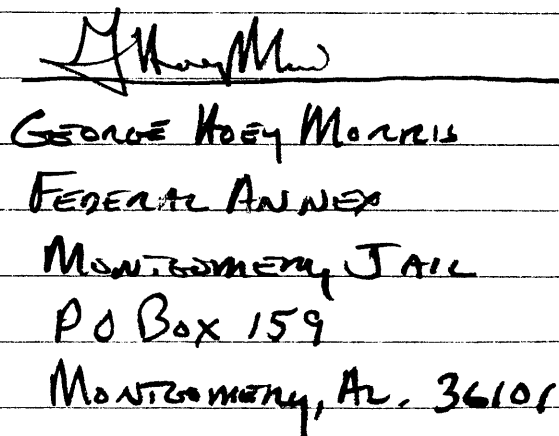 G Hoey Morris
GEORGE HOEY MORRIS
FEDERAL ANNEX
MONTGOMERY JAIL
P O BOX 159
MONTGOMERY, AL. 36101